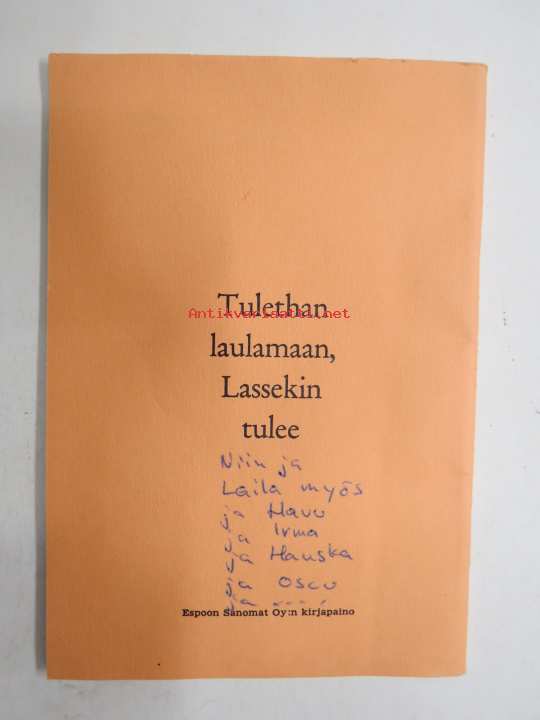 Tulethan
Antikvariaatti.net
laulamaan,
Lassekin
tulee
Niin ja
Laila myös
ja Havu
ja Irma
ja Hauska
ja Oscu
ja
Espoon Sanomat Oy:n kirjapaino